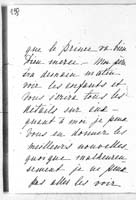 que le Prince va bien
bien merci - Mon
ira demain matin
voir les enfants et
vous écrira tous les
détails sur eux
quant à moi je peux
vous en donner les
meilleures nouvelles
quoique malheureuse
sement je ne peux
pas aller les voir